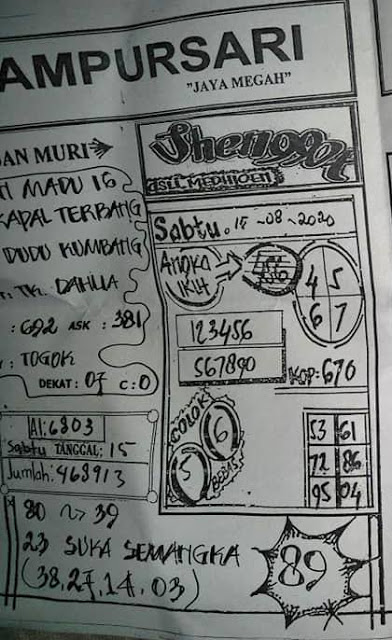 AMPURSARI
"JAYA MEGAH"
SAN MURI
MADU 16
KAPAL TERBANG
DUDU KUMBANG
TK. DAHLIA
: 692 ASK : 381
: TOGOK
DEKAT : 07 C : 0
AI : 6803
Sabtu TANGGAL : 15
Jumlah : 468913
80 ~> 39
23 SUKA SEMANGKA
(38, 27, 14, 03)
ASLI
Sabtu. 15 - 08 - 2020
ANGKA
4 5
6 7
123456
567890
KOP : 670
COLOK
6
5
BEBAS
53 61
72 86
95 04
89